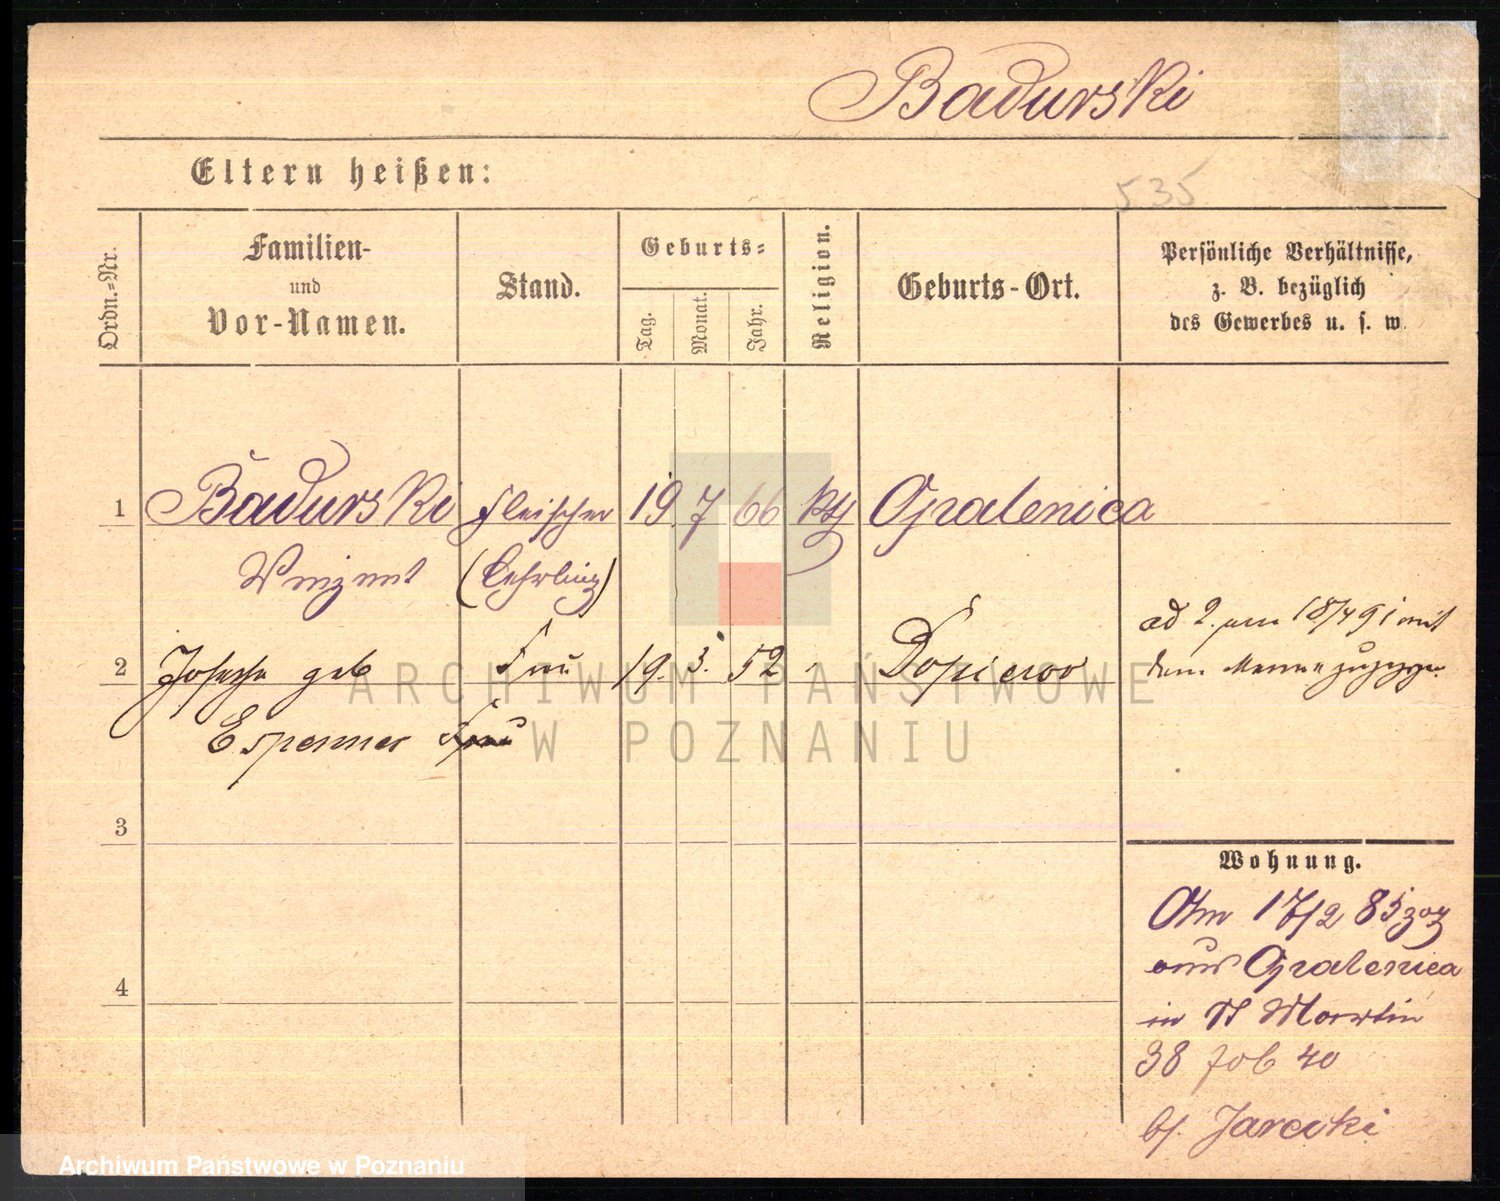 Badurski
Eltern heißen:
535
Ordn.=Nr.
Familien-
und
Vor-Namen.
Stand.
Geburts=
Tag.
Monat.
Jahr.
Religion.
Geburts-Ort.
Persönliche Verhältnisse,
z. B. bezüglich
des Gewerbes u. s. w.
1 Badurski Fleischer 19 7 66 kth Opalenica
Vinzent (Lehrling)
ad 2. am 18/4 91 mit
2 Josepha geb Frau 19. 3. 52 Dopierwo
dem Manne
Frau
ARCHIWUM PAŃSTWOWE
W POZNANIU
3
Wohnung.
Am 17/2 85 zog
aus Opalenica
4
in St Martin
38 Job 40
b/. Jarecki
Archiwum Państwowe w Poznaniu